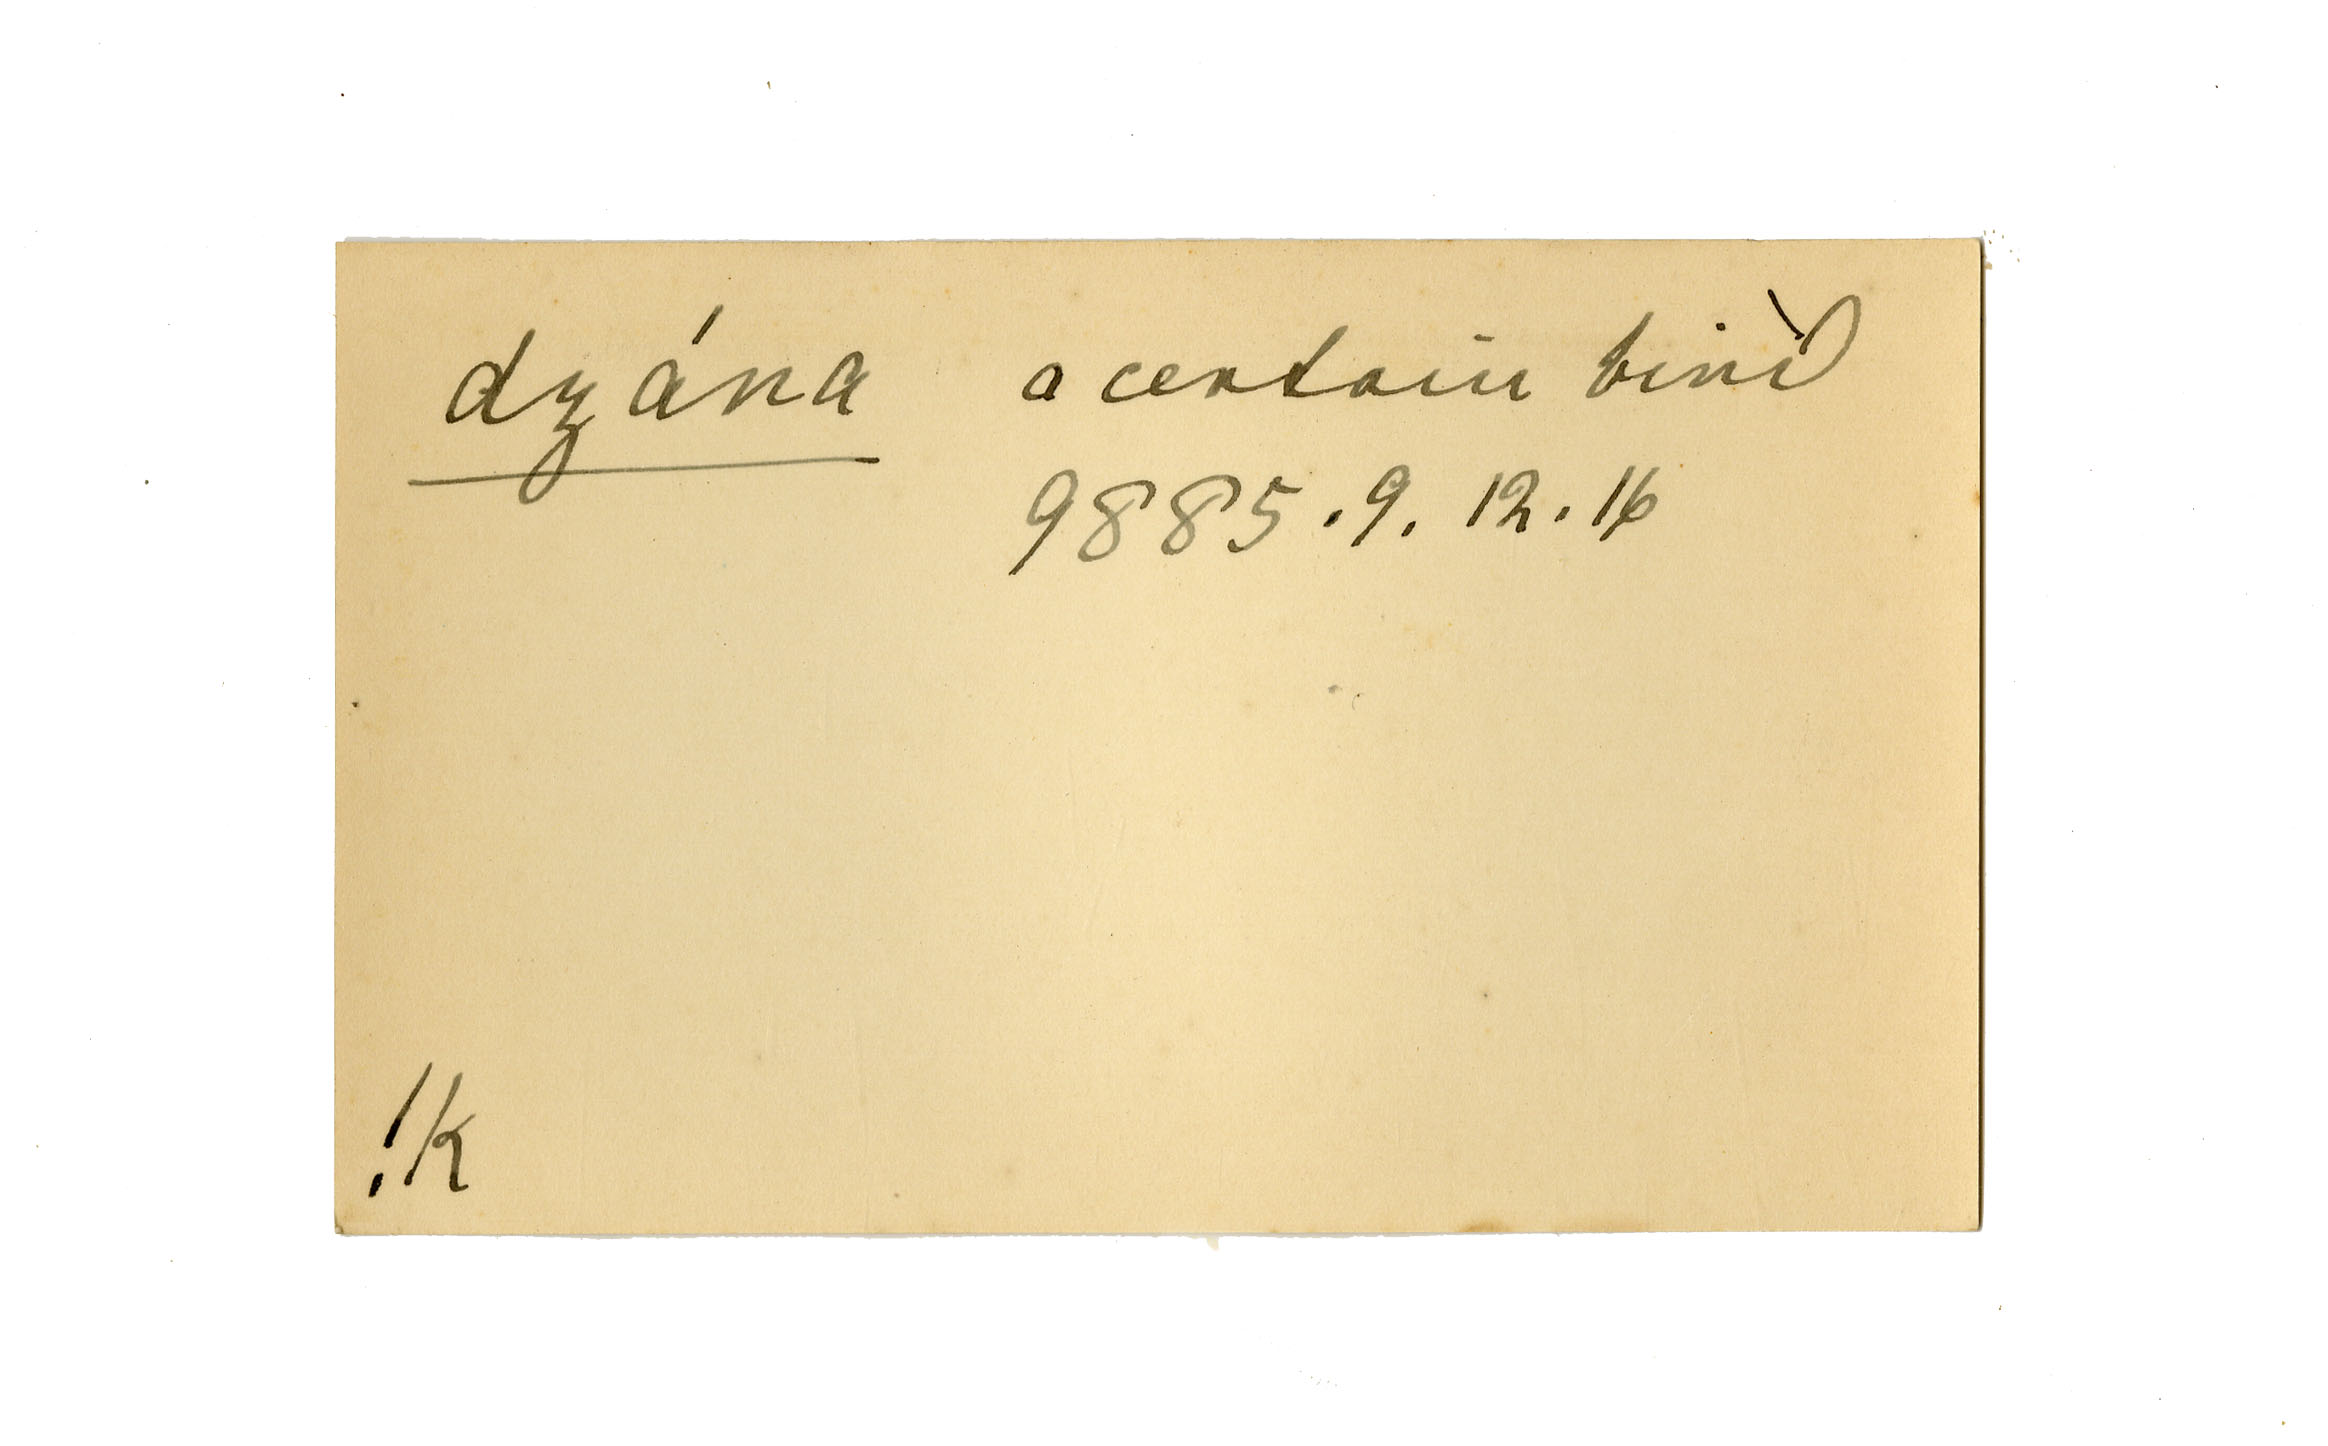 dzána a certain bird
9885.9.12.16
!k